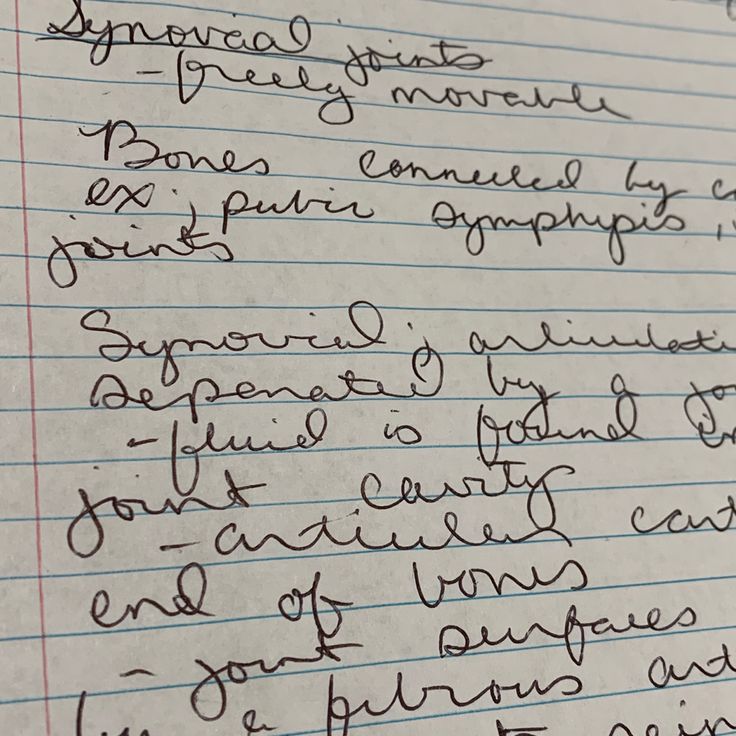 Synovial joints
- freely movable
Bones connected by c
ex; pubic symphysis,
joints
Synovial; articulati
Seperated by a jo
- fluid is found in
joint cavity
- articular cart
end of bones
- joint surfaces
a fibrous art